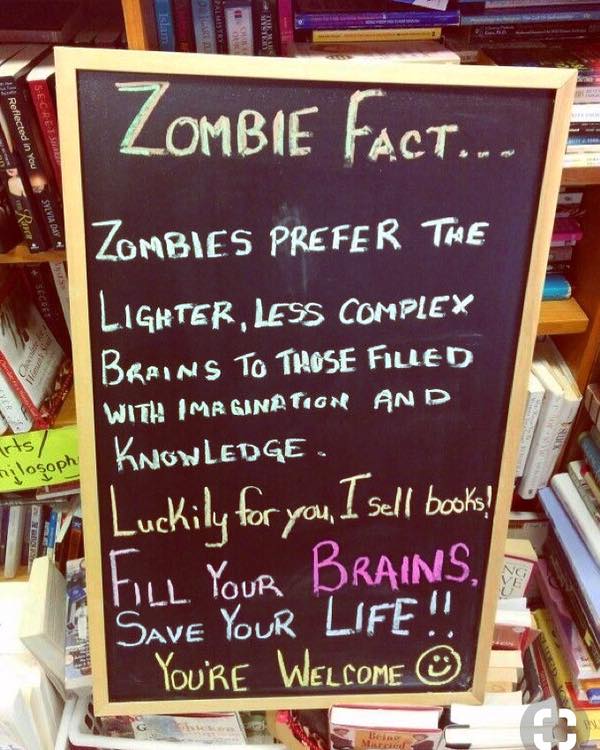 ZOMBIE FACT...
ZOMBIES PREFER THE
LIGHTER, LESS COMPLEX
BRAINS TO THOSE FILLED
WITH IMAGINATION AND
KNOWLEDGE.
Luckily for you, I sell books!
FILL YOUR BRAINS,
SAVE YOUR LIFE!!
YOU'RE WELCOME ☺
Reflected in You
SYLVIA DAY
SECRET
rts/
hilosoph
Chicken
Being
Married